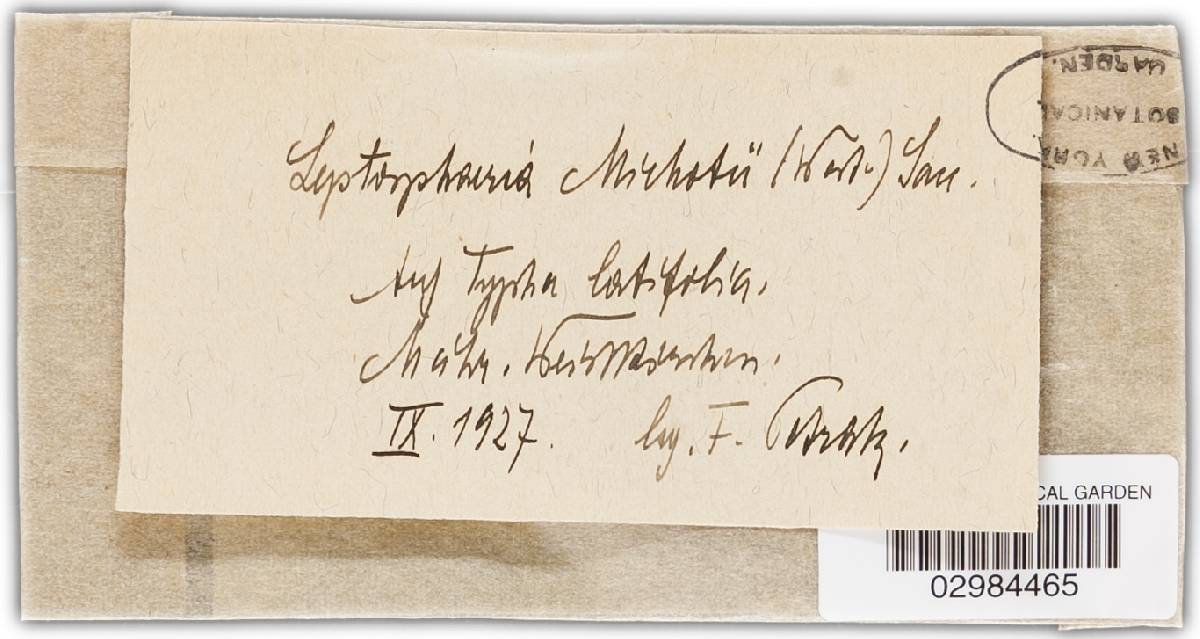 Leptosphaeria Michotii (West.) Sacc.
Auf Typha latifolia.
Mähr. Weisskirchen.
IX. 1927. leg. F. Petrak.
NEW YORK
BOTANICAL
GARDEN.
CAL GARDEN
02984465